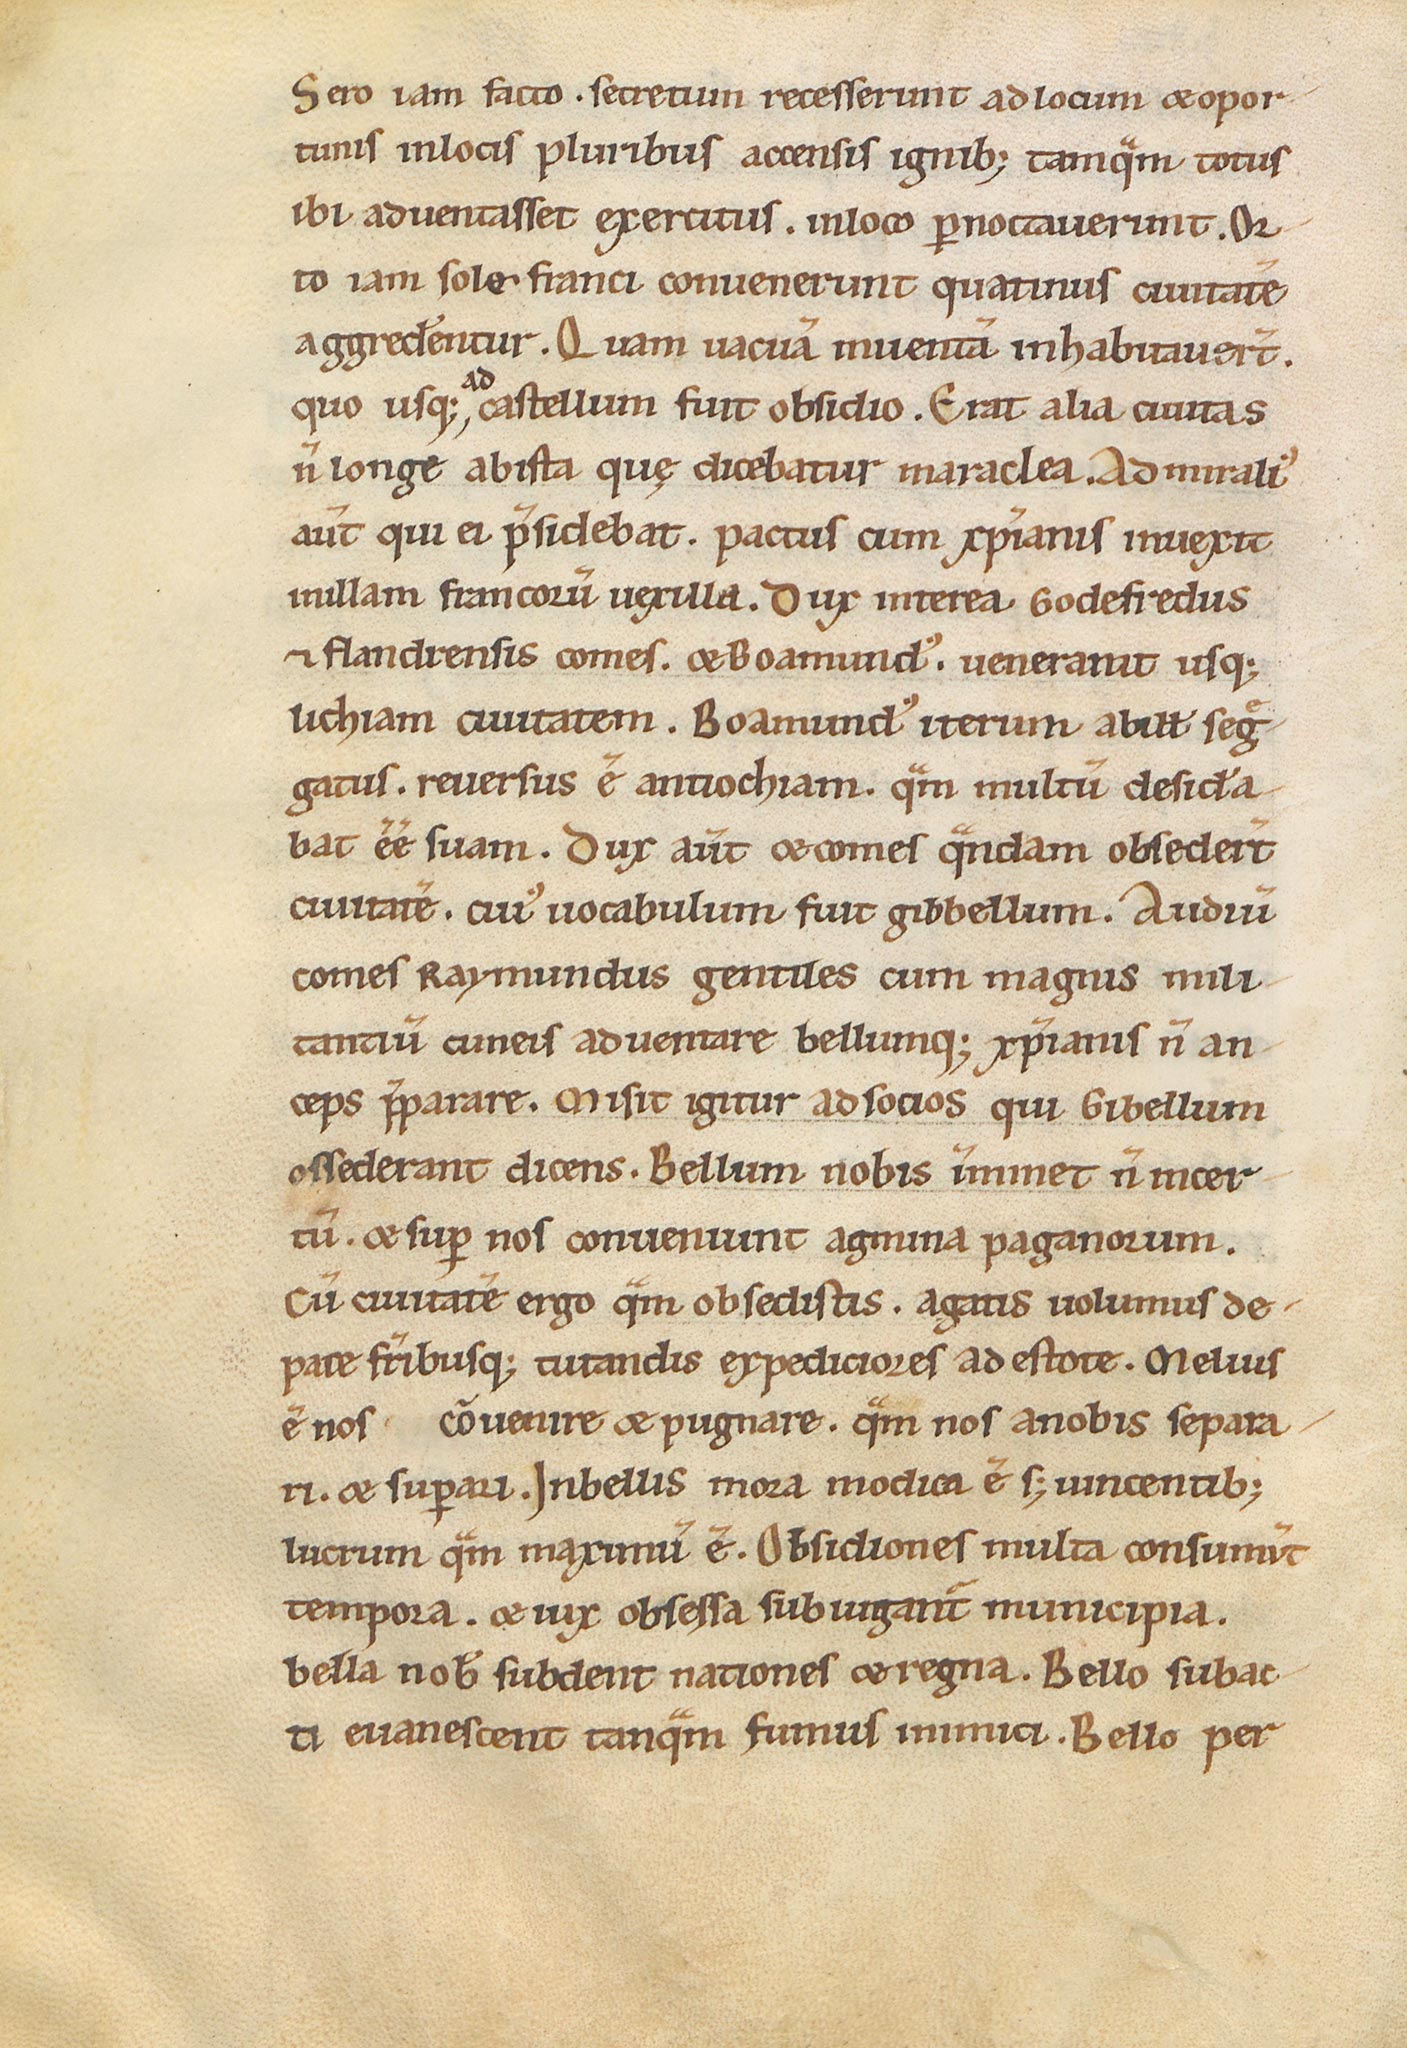 Sero iam facto . secretium recesserunt adlocum & opor-
tunis inlocis pluribus accensis ignib; tamqͣm totus
ibi aduentasset exercitus . inloco ꝑnoctauerunt . Or-
to iam sole franci conuenerunt quatinus ciuitatē
aggred̄entur . Quam uacuā inuentā inhabitauer̄t .
quo usq; ad castellum fuit obsidio . Erat alia ciuitas
n̄ longe abista quę dicebatur maraclea . Admiraliꝰ
aūt qui ei p̄sidebat . pactus cum xp̄ianis inuexit
inillam francorū uexilla . Dux interea Godefredus
⁊ flandrensis comes . & Boamundꝰ . uenerant usq;
lichiam ciuitatem . Boamundꝰ iterum abill̄ seg̊-
gatus . reuersus ē antiochiam . qͣm multū desid̄a-
bat ēē suam . Dux aūt & comes qͣndam obseder̄t
ciuitatē . cuiꝰ uocabulum fuit gibbellum . Audiū
comes Raymundus gentiles cum magnis mili-
tantiū cuneis aduentare bellumq; xp̄ianis n̄ an-
ceps p̄parare . Misit igitur adsocios qui Gibellum
ossederant dicens . Bellum nobis īminet n̄ incer-
tū . & suꝑ nos conueniunt agmina paganorum .
Cū ciuitatē ergo qͣm obsedistis . agatis uolumus de-
pace fr̄ibusq; tutandis expediciores adestote . Melius
ē nos cōuenire & pugnare . qͣm nos anobis separa-
ri . & suꝑari . Inbellis mora modica ē s; uincentib;
lucrum qͣm maximū ē . Obsidiones multa consumūt
tempora . & uix obsessa subiugant̄ municipia .
bella nob̄ subdent nationes & regna . Bello subac-
ti euanescent tanqͣm fumus inimici . Bello per